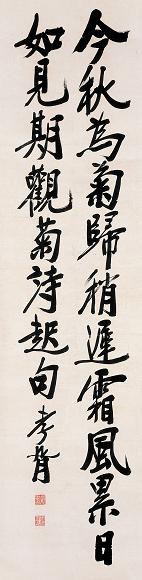 今秋為菊歸稍遲霜風累日
如見期觀菊詩起句孝胥